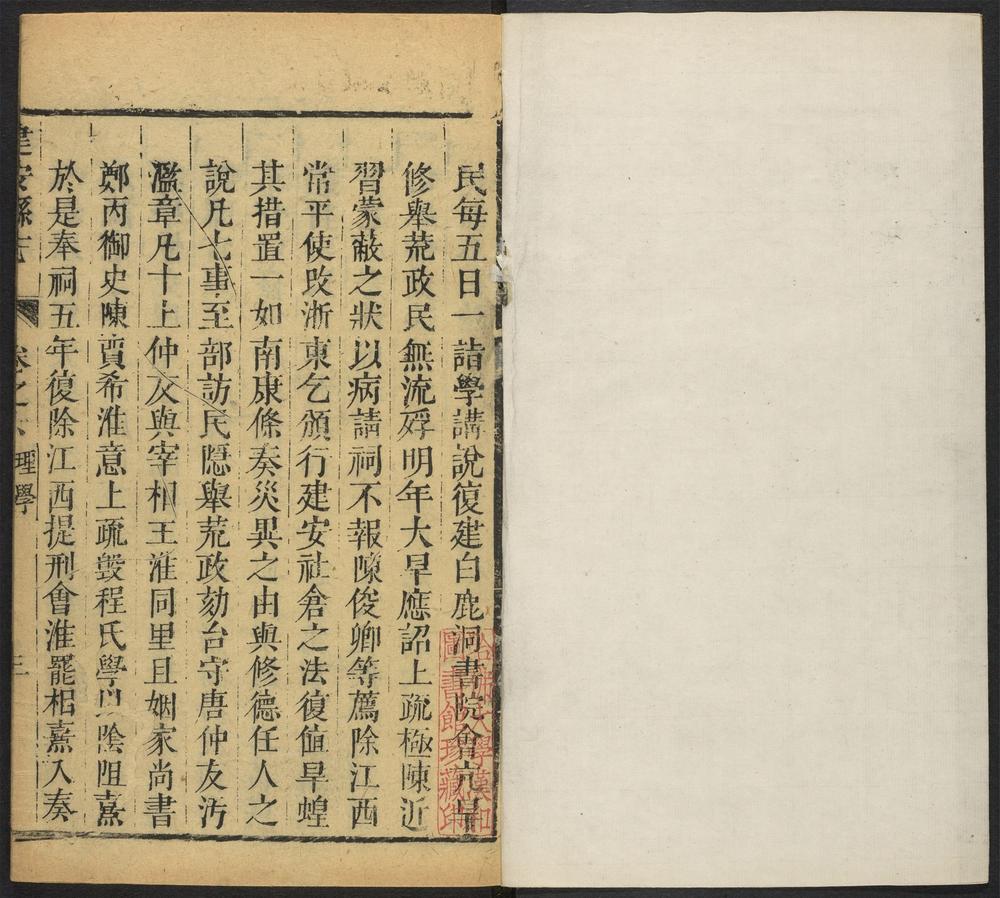 民每五日一詣學講說復建白鹿洞書院會亢旱
修舉荒政民無流殍明年大旱應詔上疏極陳近
習蒙蔽之狀以病請祠不報陳俊卿等薦除江西
常平使改浙東乞頒行建安社倉之法復値旱蝗
其措置一如南康條奏災異之由與修德任人之
說凡七事至部訪民隱舉荒政劾台守唐仲友汚
濫章凡十上仲友與宰相王淮同里且姻家尚書
鄭丙御史陳賈希淮意上疏毀程氏學以陰阻熹
於是奉祠五年復除江西提刑會淮罷相熹入奏
建安縣志 卷之六 理學 三
哈佛大學漢和
圖書館珍藏印